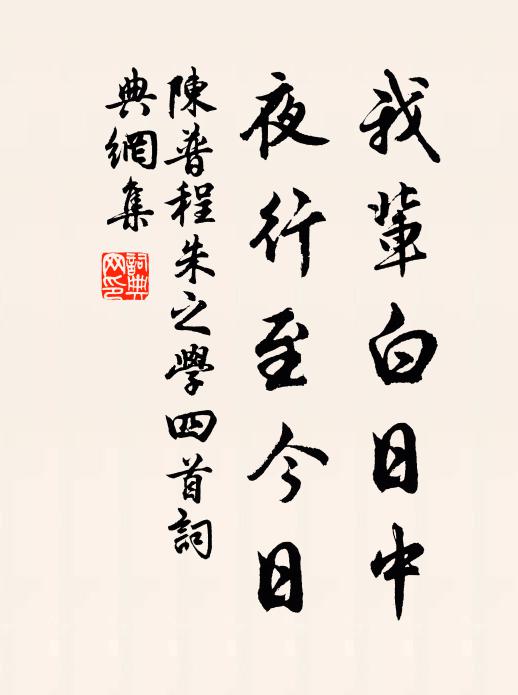 我輩白日中
夜行至今日
陳普程朱之學四首詞
典網集
詞典网印